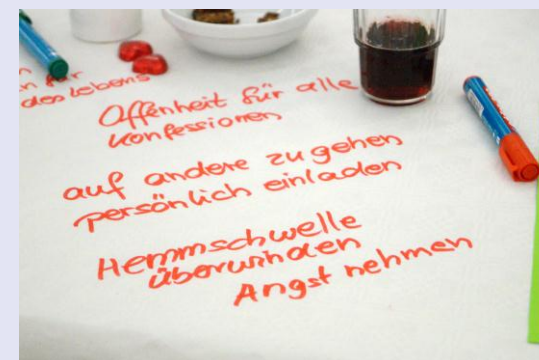 für
des Lebens
Offenheit für alle
Konfessionen
auf andere zu gehen
persönlich einladen
Hemmschwelle
überwinden
Angst nehmen